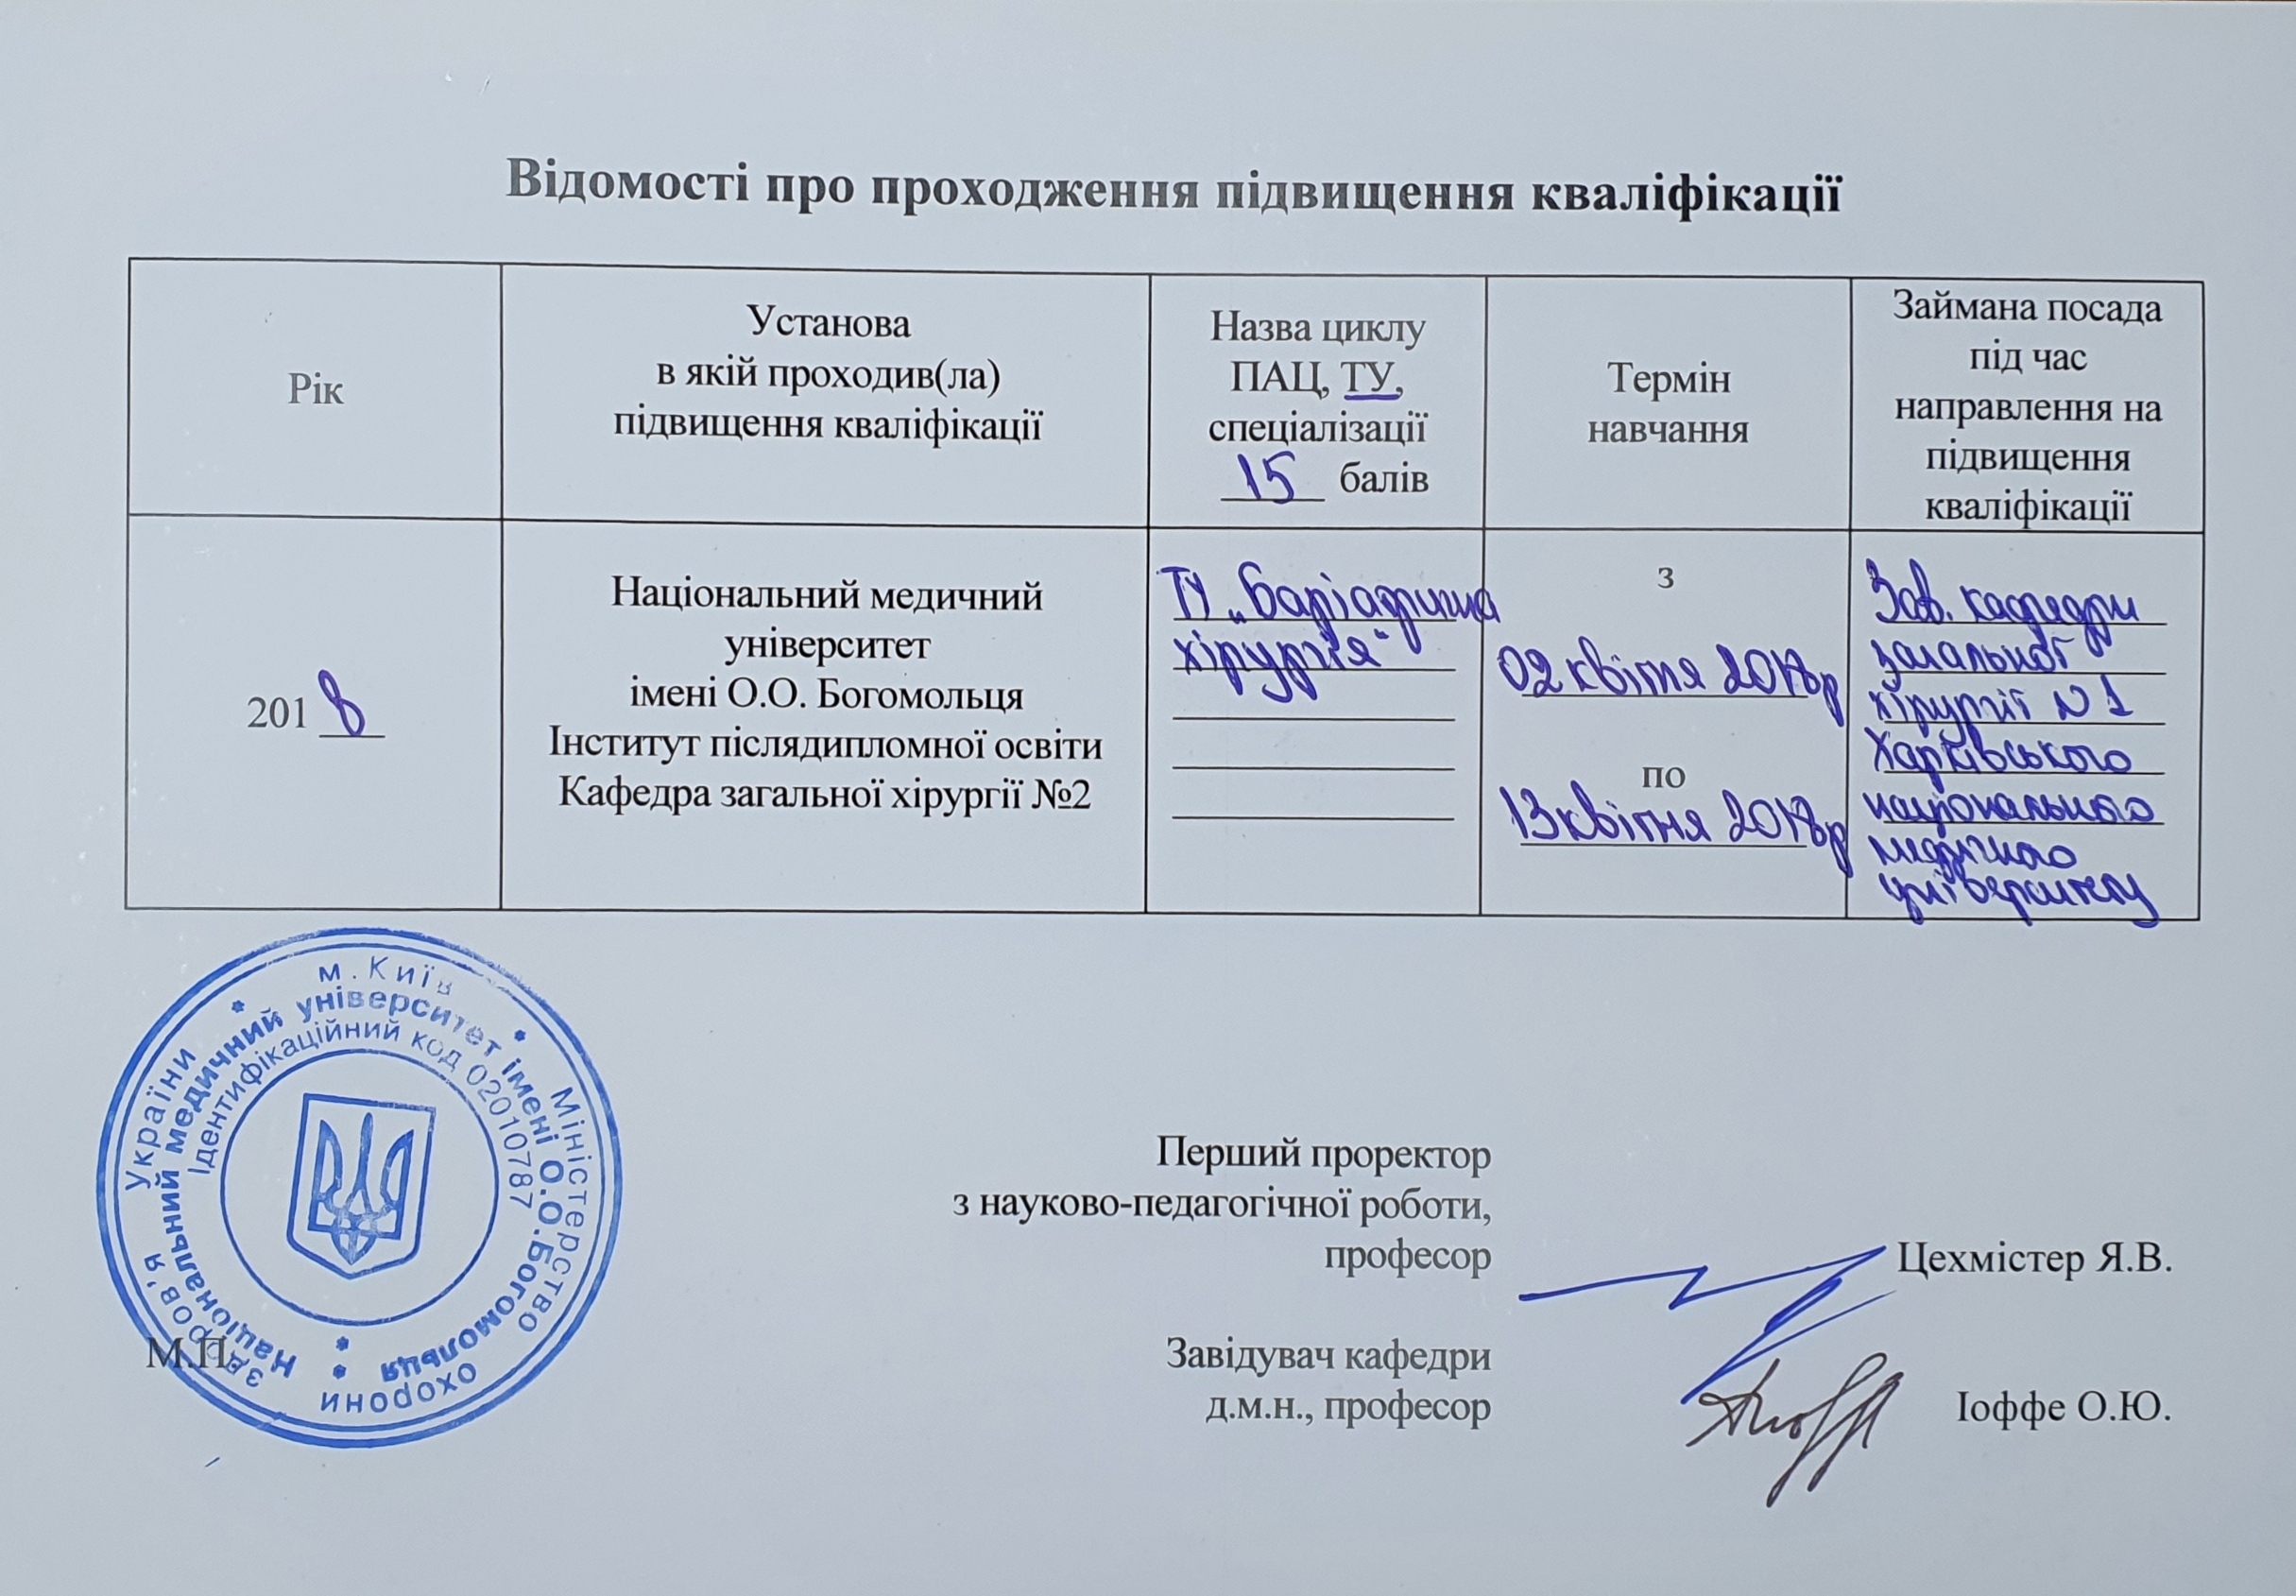 Відомості про проходження підвищення кваліфікації
Рік
Установа
в якій проходив(ла)
підвищення кваліфікації
Назва циклу
ПАЦ, ТУ,
спеціалізації
15 балів
Термін
навчання
Займана посада
під час
направлення на
підвищення
кваліфікації
2018
Національний медичний
університет
імені О.О. Богомольця
Інститут післядипломної освіти
Кафедра загальної хірургії №2
ТУ „Баріатрична
хірургія"
з
02 квітня 2018р
по
13 квітня 2018р
Зав. кафедри
загальної
хірургії №1
Харківського
національного
медичного
університету
м. Київ
Міністерство охорони здоров'я України
Національний медичний університет імені О.О.Богомольця
Ідентифікаційний код 02010787
М.П.
Перший проректор
з науково-педагогічної роботи,
професор
Цехмістер Я.В.
Завідувач кафедри
д.м.н., професор
Іоффе О.Ю.